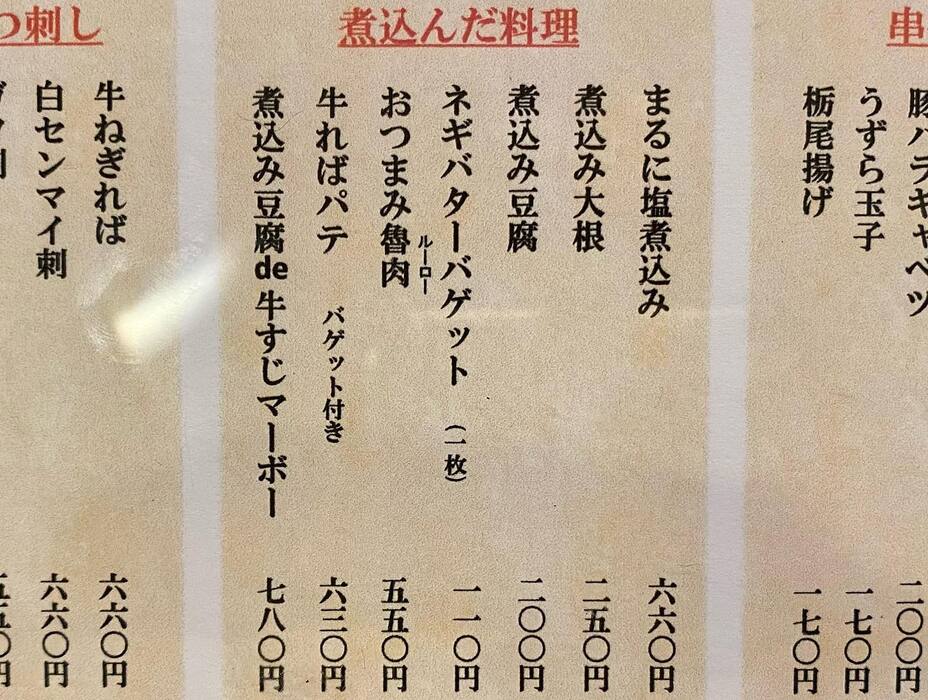 串
豚バラキャベツ
二〇〇円
うずら玉子
一七〇円
栃尾揚げ
一七〇円
煮込んだ料理
まるに塩煮込み
六六〇円
煮込み大根
二五〇円
煮込み豆腐
二〇〇円
ネギバターバゲット（一枚）
一一〇円
おつまみ魯肉
ルーロー
五五〇円
牛ればパテ バゲット付き
六三〇円
煮込み豆腐de牛すじマーボー
七八〇円
つ刺し
牛ねぎれば
六六〇円
白センマイ刺
六六〇円
五五〇円